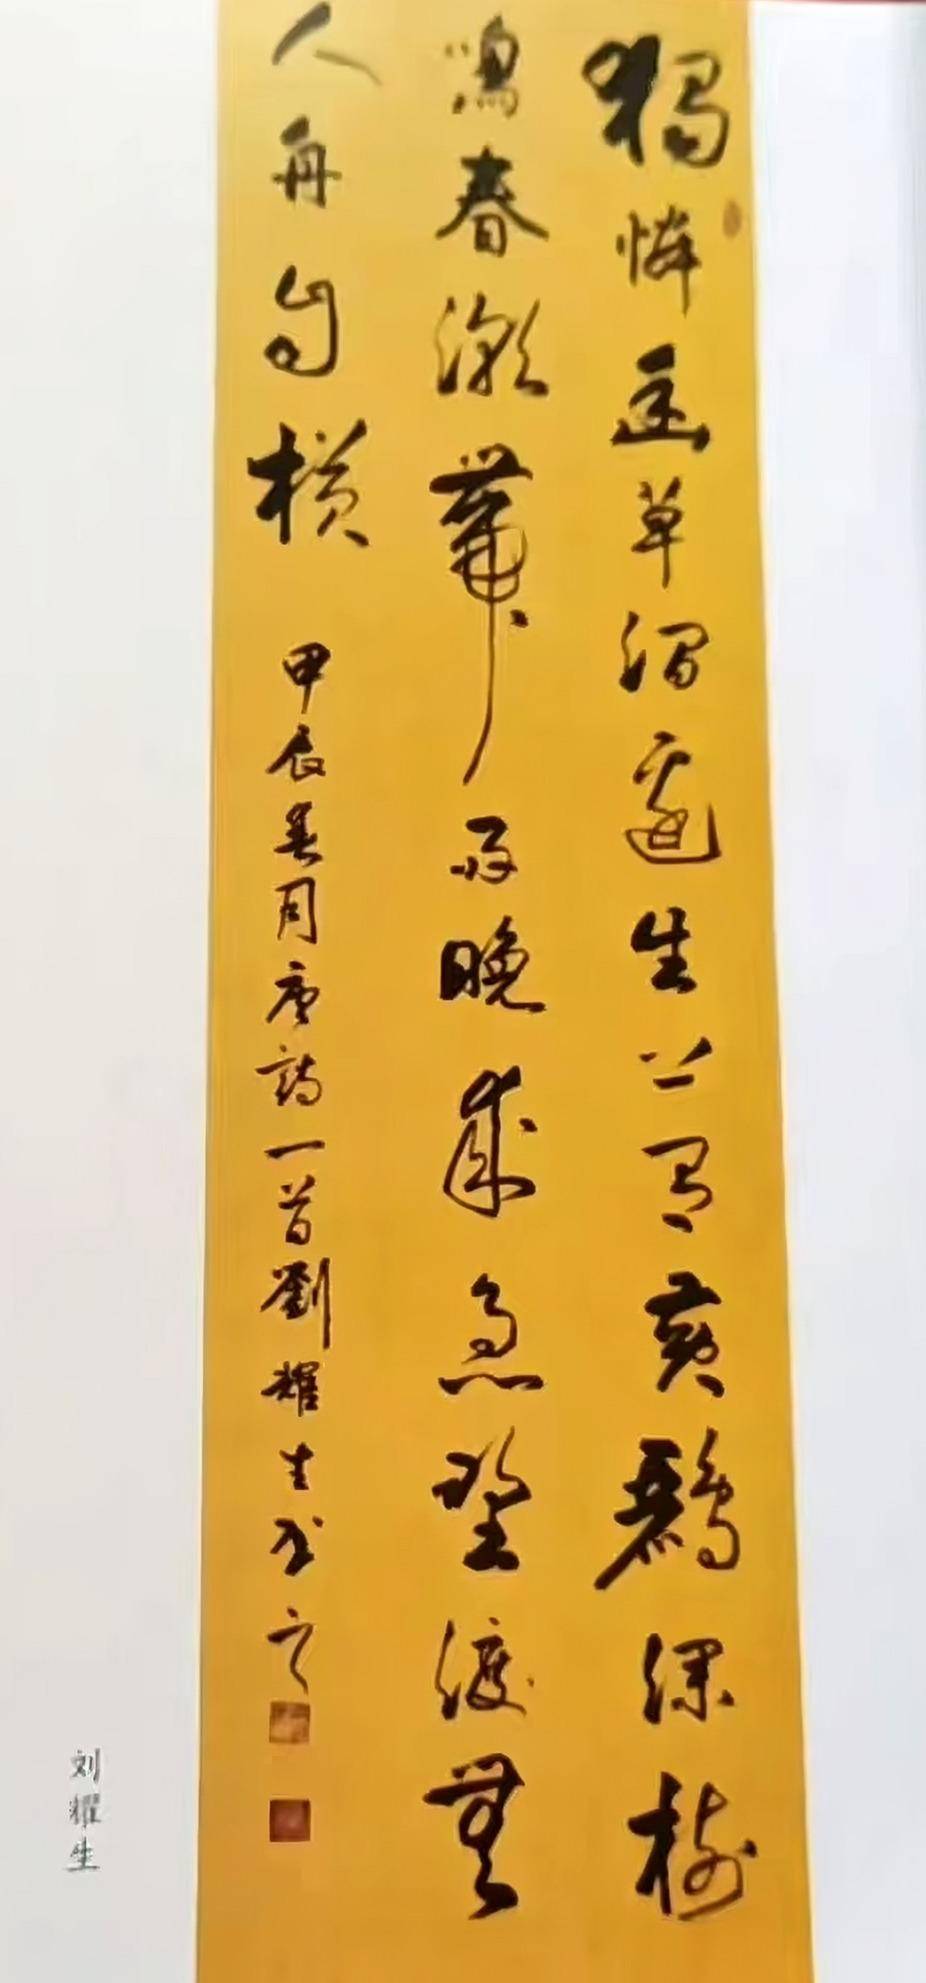 獨憐幽草澗邊生上有黃鸝深樹
鳴春潮帶雨晚來急埜渡無
人舟自橫
甲辰春月唐詩一首劉耀生书
刘耀生